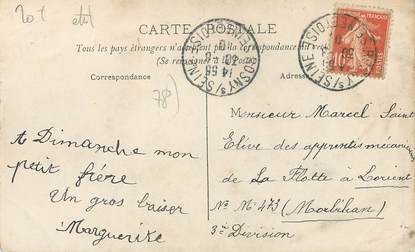 20f
CARTE POSTALE
Tous les pays étrangers n'acceptent pas la correspondance
(Se renseigner
Correspondance
Adresse
78)
ROSNY S/SEINE
SEINE-ET-OISE
14 55
A Dimanche mon
petit frère
Un gros baiser
Marguerite
Monsieur Marcel Saint
Elève des apprentis mécaniciens
de La Flotte à Lorient
No Mle 473 (Morbihan)
3e Division